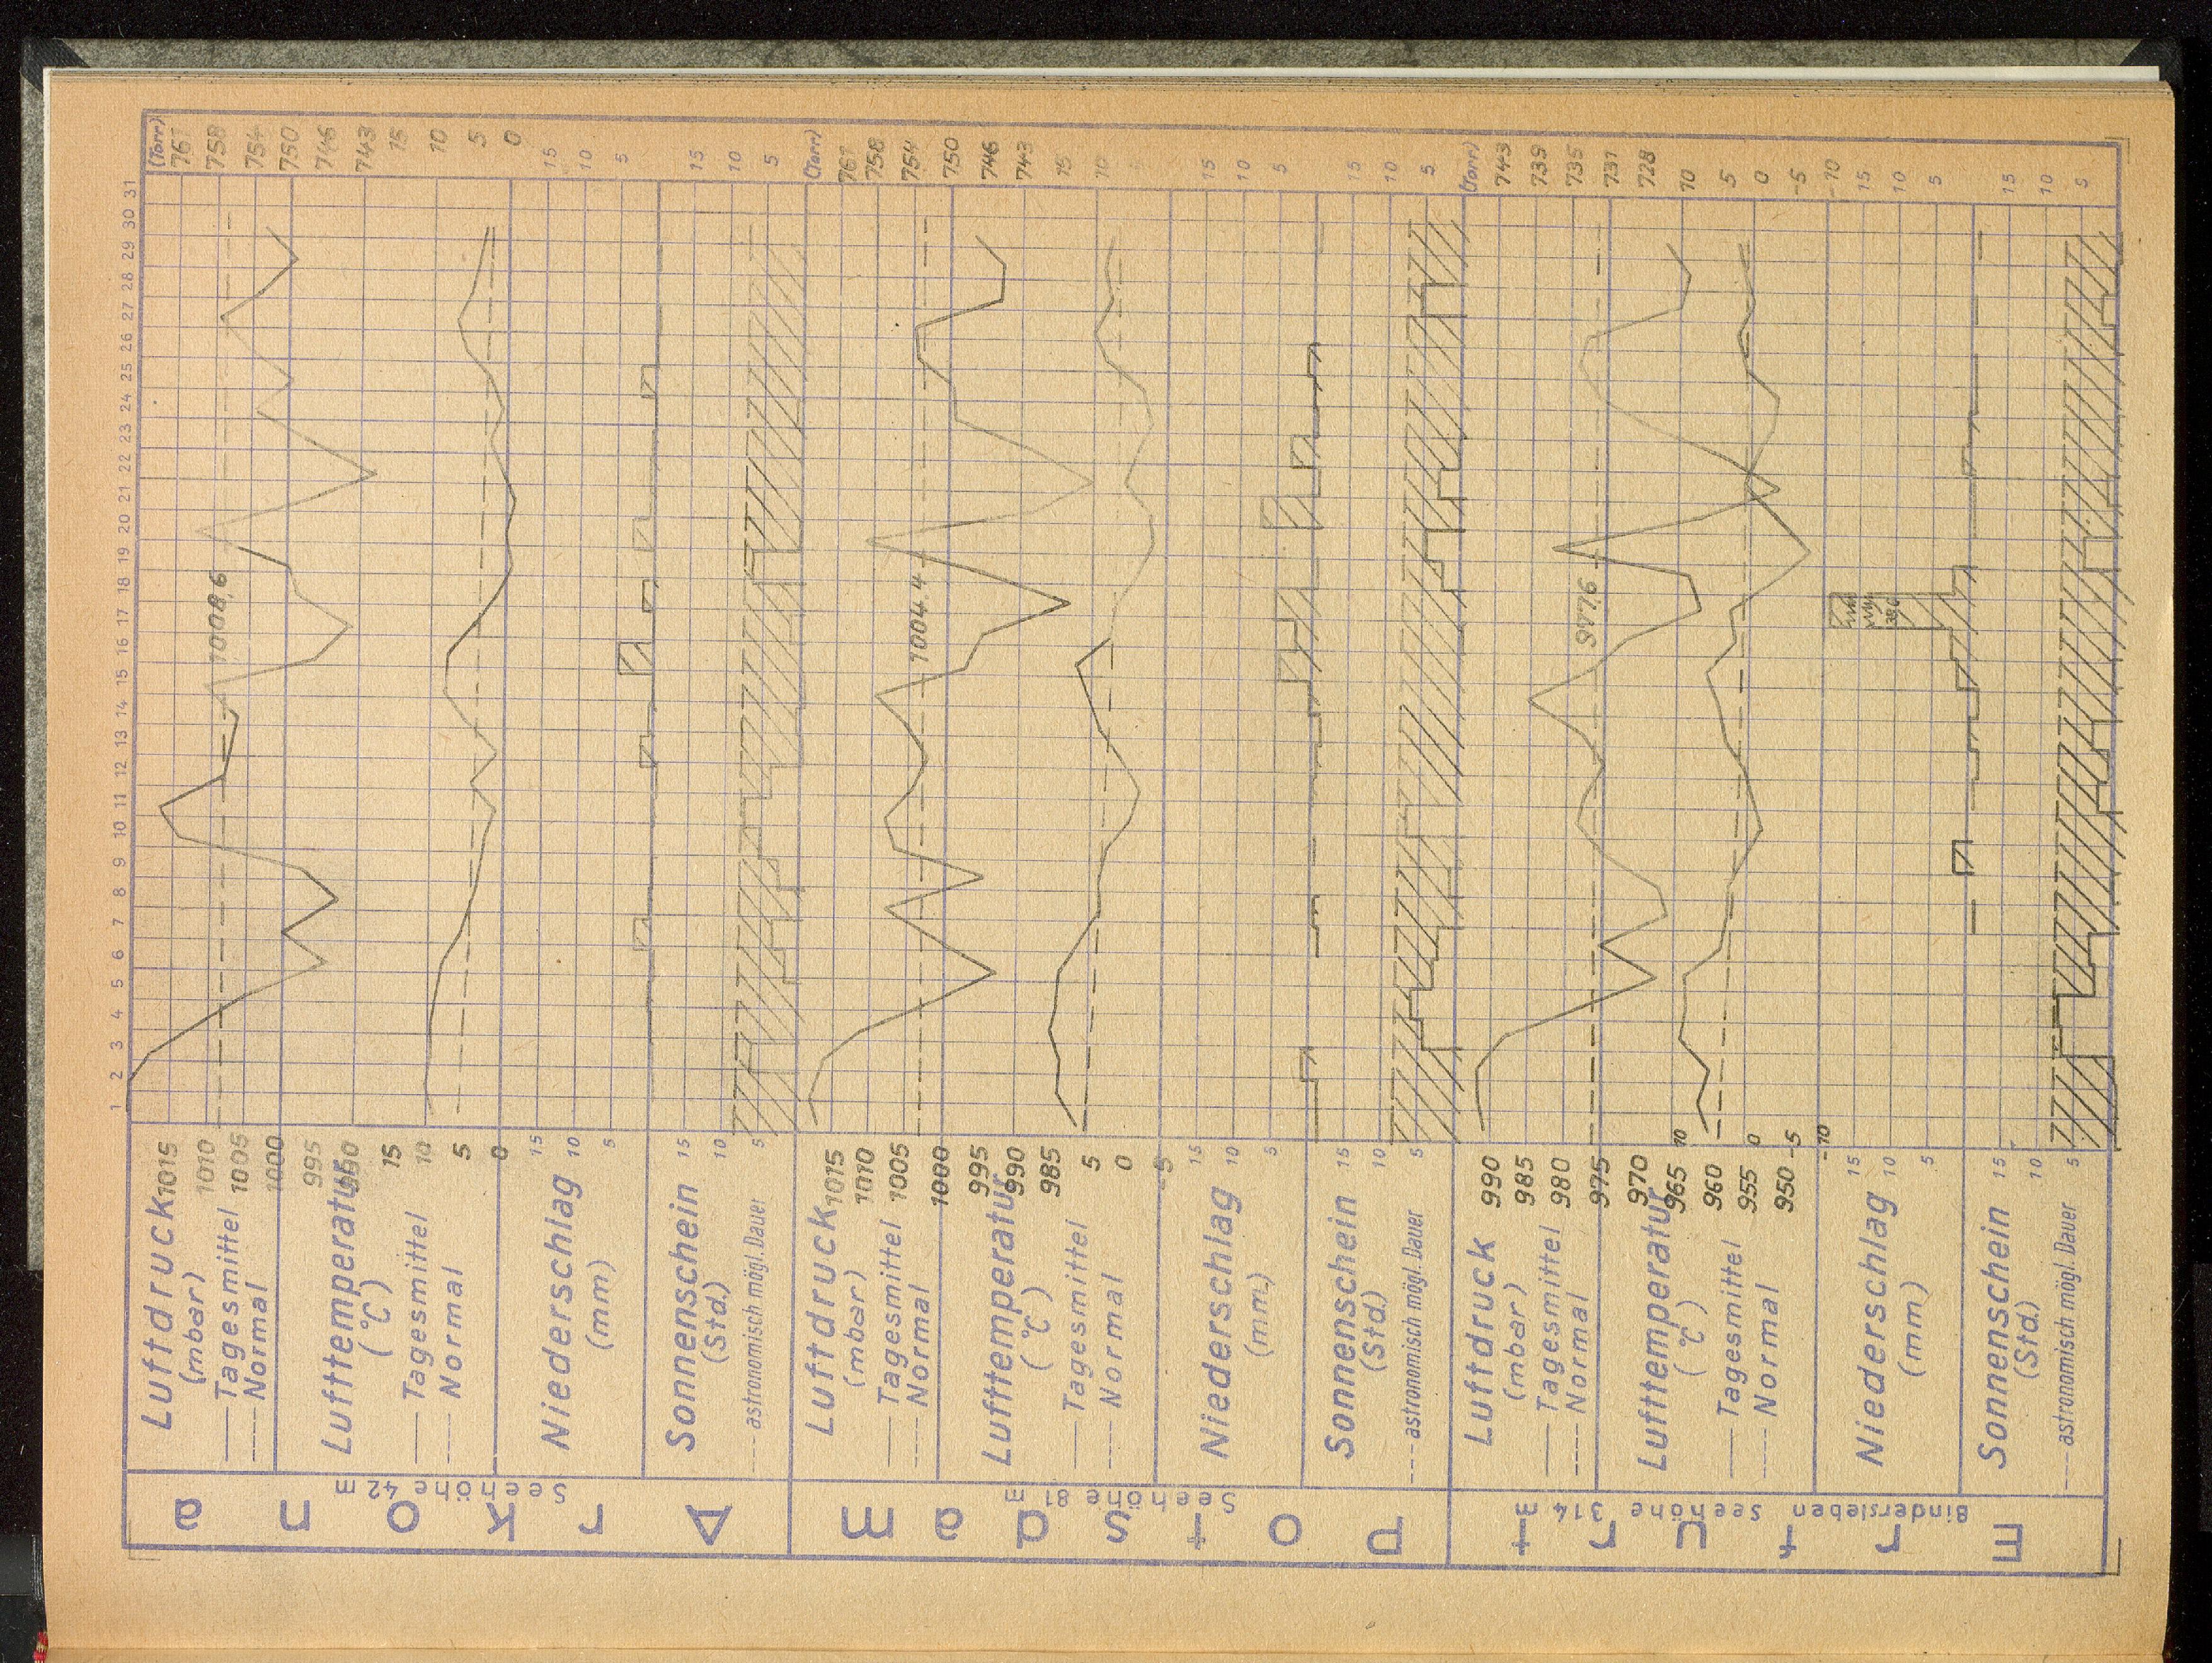 1 2 3 4 5 6 7 8 9 10 11 12 13 14 15 16 17 18 19 20 21 22 23 24 25 26 27 28 29 30 31
Arkona
Seehöhe 42 m
Luftdruck
(mbar)
Tagesmittel
Normal
1015
1010
1005
1000
995
990
1008,6
(Torr)
761
758
754
750
746
743
Lufttemperatur
(°C)
Tagesmittel
Normal
15
10
5
0
15
10
5
0
Niederschlag
(mm)
15
10
5
15
10
5
Sonnenschein
(Std.)
astronomisch mögl. Dauer
15
10
5
15
10
5
Potsdam
Seehöhe 81 m
Luftdruck
(mbar)
Tagesmittel
Normal
1015
1010
1005
1000
995
990
985
1004.4
(Torr)
761
758
754
750
746
743
Lufttemperatur
(°C)
Tagesmittel
Normal
5
0
-5
15
10
Niederschlag
(mm)
15
10
5
15
10
5
Sonnenschein
(Std.)
astronomisch mögl. Dauer
15
10
5
15
10
5
Erfurt
Bindersleben Seehöhe 314 m
Luftdruck
(mbar)
Tagesmittel
Normal
990
985
980
975
970
965
960
955
950
977.6
(Torr)
743
739
735
731
728
Lufttemperatur
(°C)
Tagesmittel
Normal
10
0
-5
-10
10
5
0
-5
-10
Niederschlag
(mm)
15
10
5
15
10
5
Sonnenschein
(Std.)
astronomisch mögl. Dauer
15
10
5
15
10
5